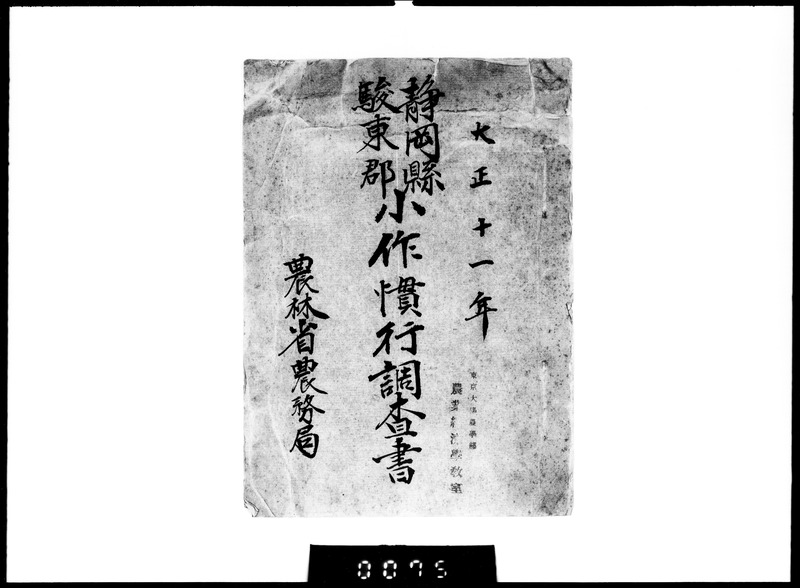 大正十一年
静岡縣
駿東郡
小作慣行調査書
農林省農務局
東京大學農學部
農業經濟學教室
0075